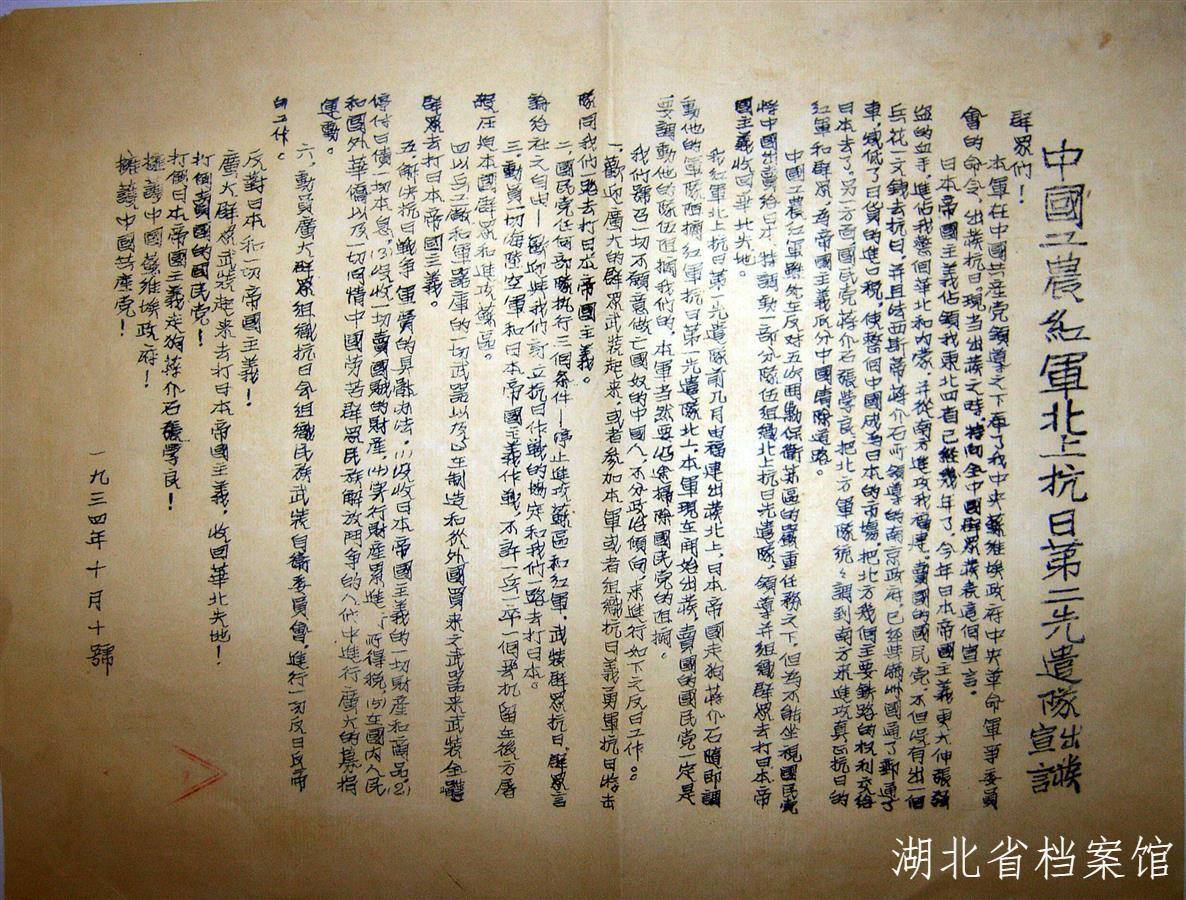 中國工農紅軍北上抗日第二先遣隊出發宣言
群眾們！
本軍在中國共產党領導之下奉了我中央蘇維埃政府中央革命軍事委員
會的命令，出發抗日。現当出發之時，特向全中國群眾發表這個宣言。
日本帝國主義佔領我東北四省已經幾年了，今年日本帝國主義更大伸張強
盜的血手，進佔我整個華北和内蒙，并從南方進攻我福建。賣國的國民党，不但沒有出一個
兵花一文錢去抗日，并且法西斯蒂蔣介石所領導的南京政府，已經與滿州國通了郵通了
車，减低了日貨的進口税，使整個中國成為日本的市場，把北方幾個主要鉄路的权利交給
日本去了。另一方面國民党蔣介石張學良把北方軍隊統々調到南方來進攻真正抗日的
紅軍和群眾，為帝國主義瓜分中國清除道路。
中國工農紅軍雖然在反对五次囲勦保衛苏區的嚴重任務之下，但為不能坐視國民党
將中國出賣給日本，特調動一部分隊伍組織北上抗日先遣隊，領導并組織群眾去打日本帝
國主義收回華北失地。
我紅軍北上抗日第一先遣隊前几月由福建出發北上，日本帝國走狗蔣介石隨即調
動他的軍隊阻攔紅軍抗日第一先遣隊北上，本軍現在開始出發，賣國的國民党一定是
要調動他的隊伍阻攔我們的，本軍当然要沿途掃除國民党的阻攔。
我們號召一切不願意做亡國奴的中國人，不分政治傾向來進行如下之反日工作：
一、歡迎廣大的群眾武裝起來，或者参加本軍，或者組織抗日義勇軍抗日游击
隊同我們一起去打日本帝國主義。
二、國民党任何部隊执行三個条件——停止進攻蘇區和紅軍，武裝群眾抗日，群眾言
論结社之自由——歡迎與我們訂立抗日作戰的協定和我們一路去打日本。
三、動員一切海陸空軍和日本帝國主義作戰，不許一兵一卒一個飞机留在後方屠
殺压迫本國群眾和進攻蘇區。
四、以兵工廠和軍器庫的一切武器以及正在制造和從外國買來之武器來武装全體
群眾去打日本帝國主義。
五、解决抗日戰争軍費的具體办法，(1)沒收日本帝國主義的一切財產和商品，(2)
停付日債一切本息，(3)沒收一切賣國賊的財產，(4)实行財産累進所得税，(5)在國内人民
和國外華僑以及一切同情中國劳苦群眾民族解放鬥争的人们中進行廣大的募捐
運動。
六、動員廣大群眾組織抗日会組織民族武裝自衛委員會，進行一切反日反帝
的工作。
反對日本和一切帝國主義！
廣大群眾武裝起來去打日本帝國主義，收回華北失地！
打倒賣國的國民党！
打倒日本帝國主義走狗蔣介石張學良！
擁護中國蘇維埃政府！
擁護中國共產党！
一九三四年十月十號
湖北省档案馆